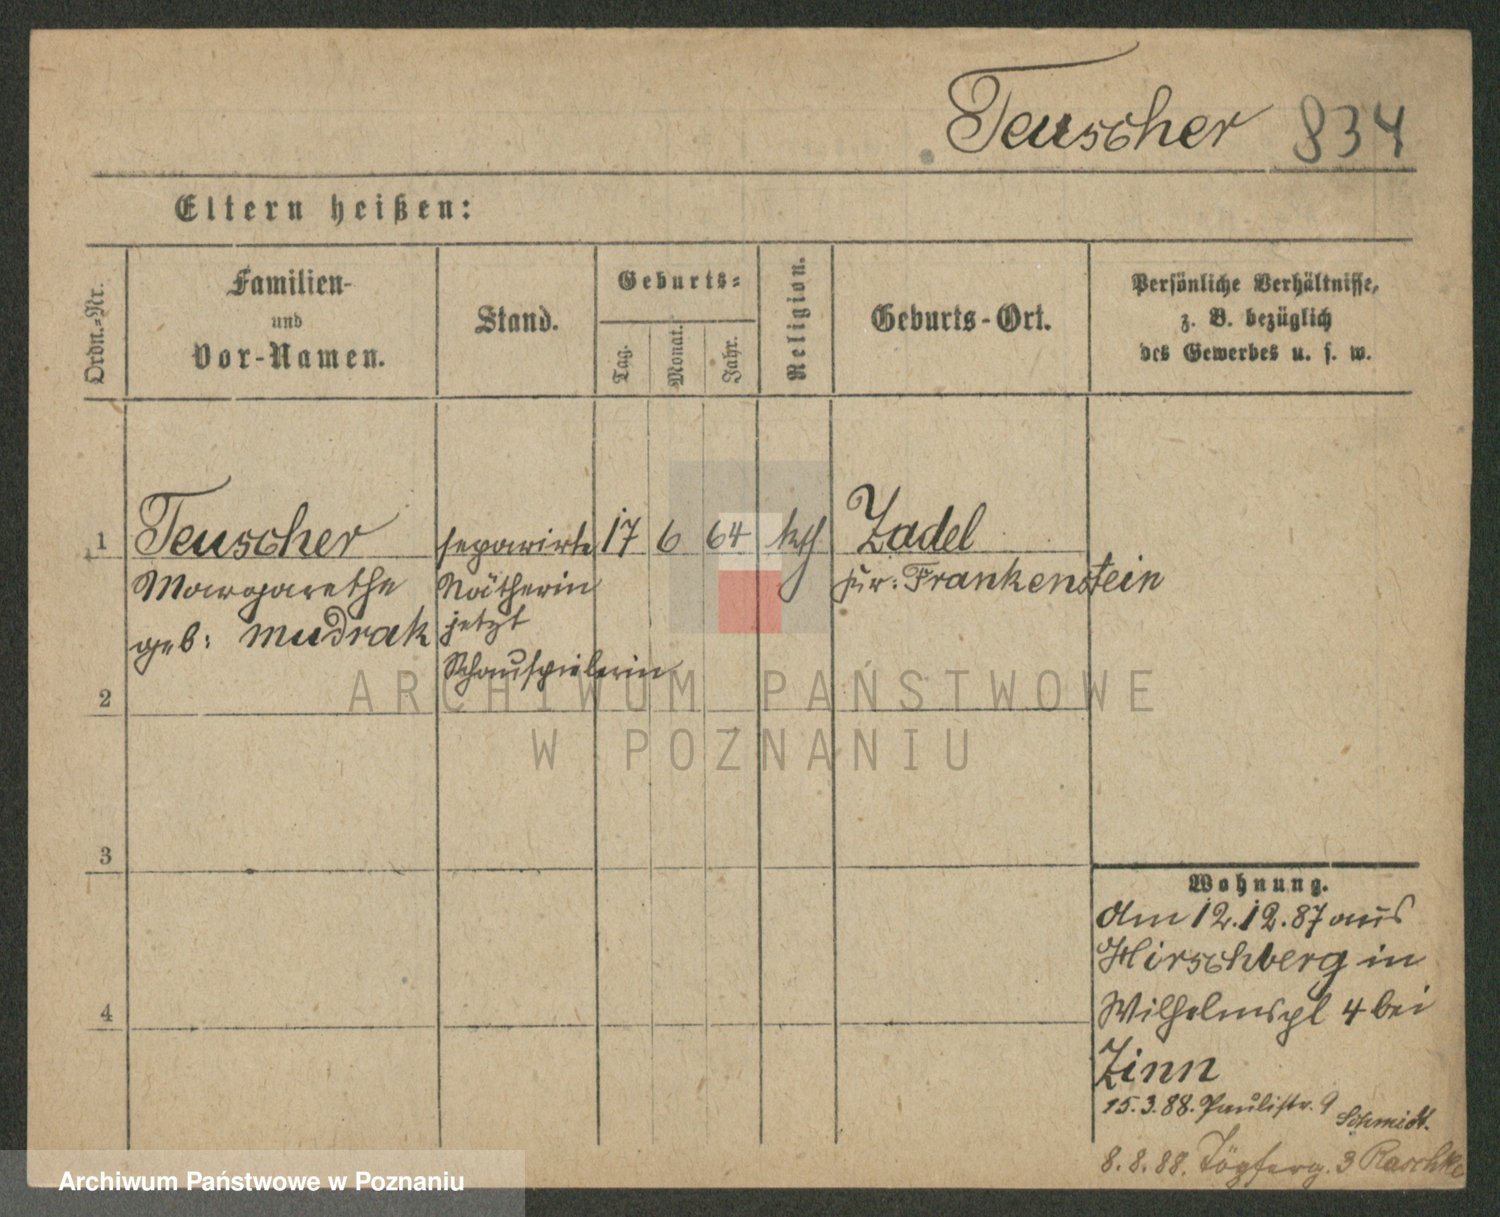 Teuscher 834
Eltern heißen:
Ordn.-Nr.
Familien-
und
Vor-Namen.
Stand.
Geburts-
Tag.
Monat.
Jahr.
Religion.
Geburts-Ort.
Persönliche Verhältnisse,
z. B. bezüglich
des Gewerbes u. s. w.
1 Teuscher separirte 17 6 64 kath Zadel
Margarethe Nätherin Kr: Frankenstein
geb: Mudrak jetzt
Schauspielerin
2
3
4
Wohnung.
Am 12.12.87 aus
Hirschberg in
Wilhelmspl 4 bei
Zinn
15.3.88. Paulistr. 9 Schmidt.
8.8.88. Töpferg. 3 Raschke
ARCHIWUM PAŃSTWOWE
W POZNANIU
Archiwum Państwowe w Poznaniu